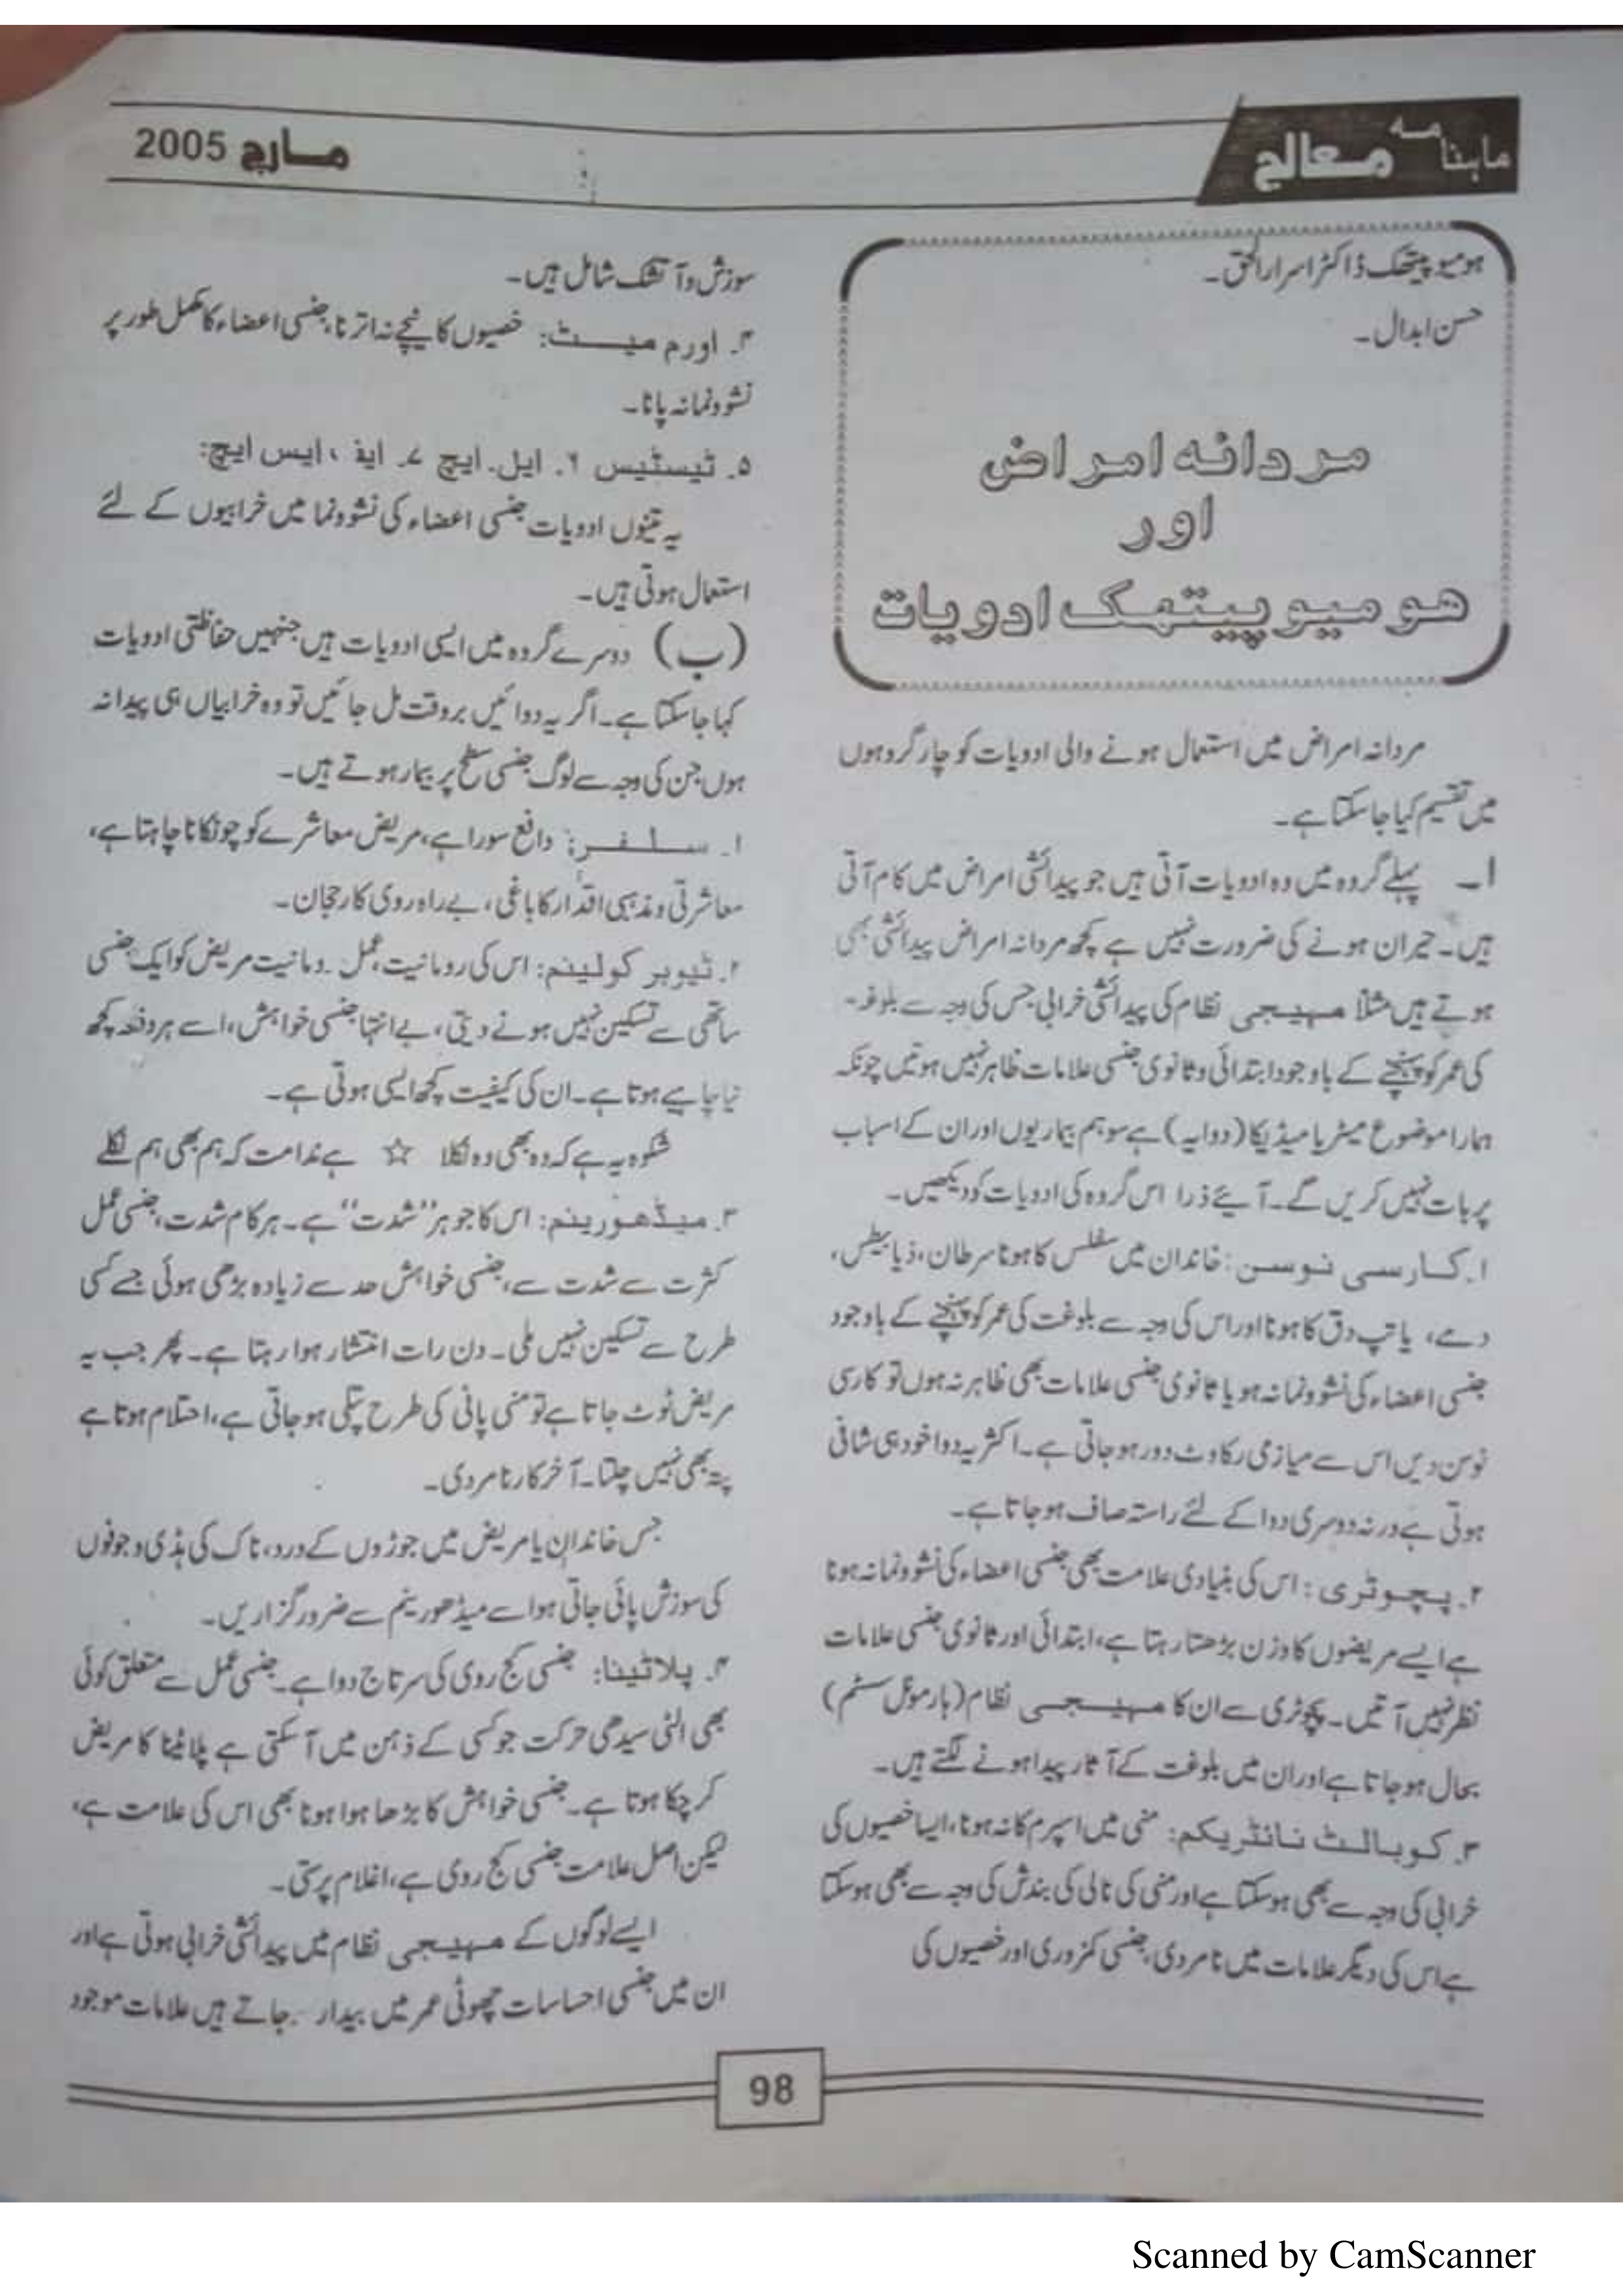 ماہنامہ معالج
مارچ 2005
ہومیو پیتھک ڈاکٹر اسرار الحق۔
حسن ابدال۔
مردانہ امراض
اور
ھومیو پیتھک ادویات
مردانہ امراض میں استعمال ہونے والی ادویات کو چار گروہوں
میں تقسیم کیا جا سکتا ہے۔
ا۔ پہلے گروہ میں وہ ادویات آتی ہیں جو پیدائشی امراض میں کام آتی
ہیں۔ حیران ہونے کی ضرورت نہیں ہے کچھ مردانہ امراض پیدائشی بھی
ہوتے ہیں مثلاً مہیجی نظام کی پیدائشی خرابی جس کی وجہ سے بلوغہ۔
کی عمر کو پہنچنے کے باوجود ابتدائی و ثانوی جنسی علامات ظاہر نہیں ہوتیں چونکہ
ہمارا موضوع میٹریا میڈیکا (دوایہ) ہے سو ہم بیماریوں اور ان کے اسباب
پر بات نہیں کریں گے۔ آیئے ذرا اس گروہ کی ادویات کو دیکھیں۔
۱۔ کارسی نوسن: خاندان میں سفلس کا ہونا سرطان، ذیابیطس،
دمے، یا تپ دق کا ہونا اور اس کی وجہ سے بلوغت کی عمر کو پہنچنے کے باوجود
جنسی اعضاء کی نشوونما نہ ہو یا ثانوی جنسی علامات بھی ظاہر نہ ہوں تو کارسی
نوسن دیں اس سے میازمی رکاوٹ دور ہو جاتی ہے۔ اکثر یہ دوا خود ہی شافی
ہوتی ہے ورنہ دوسری دوا کے لئے راستہ صاف ہو جاتا ہے۔
۲۔ پچوٹری: اس کی بنیادی علامت بھی جنسی اعضاء کی نشوونما نہ ہونا
ہے ایسے مریضوں کا وزن بڑھتا رہتا ہے، ابتدائی اور ثانوی جنسی علامات
نظر نہیں آتیں۔ پچوٹری سے ان کا مہیجی نظام (ہارمونل سسٹم)
بحال ہو جاتا ہے اور ان میں بلوغت کے آثار پیدا ہونے لگتے ہیں۔
۳۔ کوبالٹ نائٹریکم: منی میں اسپرم کا نہ ہونا، ایسا خصیوں کی
خرابی کی وجہ سے بھی ہو سکتا ہے اور منی کی نالی کی بندش کی وجہ سے بھی ہو سکتا
ہے اس کی دیگر علامات میں نامردی، جنسی کمزوری اور خصیوں کی
سوزش و آتشک شامل ہیں۔
۴۔ اورم میٹ: خصیوں کا نیچے نہ اترنا، جنسی اعضاء کا مکمل طور پر
نشوونما نہ پانا۔
۵۔ ٹیسٹیس ۶۔ ایل۔ ایچ ۷۔ ایف، ایس ایچ:
یہ تینوں ادویات جنسی اعضاء کی نشوونما میں خرابیوں کے لئے
استعمال ہوتی ہیں۔
(ب) دوسرے گروہ میں ایسی ادویات ہیں جنہیں حفاظتی ادویات
کہا جا سکتا ہے۔ اگر یہ دوائیں بروقت مل جائیں تو وہ خرابیاں ہی پیدا نہ
ہوں جن کی وجہ سے لوگ جنسی سطح پر بیمار ہوتے ہیں۔
۱۔ سلفر: دافع سورا ہے، مریض معاشرے کو چونکانا چاہتا ہے،
معاشرتی و مذہبی اقدار کا باغی، بے راہ روی کا رجحان۔
۲۔ ٹیوبر کولینم: اس کی رومانیت، عمل رومانیت مریض کو ایک جنسی
ساتھی سے تسکین نہیں ہونے دیتی، بے انتہا جنسی خواہش، اسے ہر دفعہ کچھ
نیا چاہیے ہوتا ہے۔ ان کی کیفیت کچھ ایسی ہوتی ہے۔
شکوہ یہ ہے کہ وہ بھی وہ نکلا ☆ ہے ندامت کہ ہم بھی ہم نکلے
۳۔ میڈھورینم: اس کا جوہر ”شدت“ ہے۔ ہر کام شدت، جنسی عمل
کثرت سے شدت سے، جنسی خواہش حد سے زیادہ بڑھی ہوئی جسے کسی
طرح سے تسکین نہیں ملی۔ دن رات انتشار ہوا رہتا ہے۔ پھر جب یہ
مریض ٹوٹ جاتا ہے تو منی پانی کی طرح پتلی ہو جاتی ہے، احتلام ہوتا ہے
پتہ بھی نہیں چلتا۔ آخر کار نامردی۔
جس خاندان یا مریض میں جوڑوں کے درد، ناک کی ہڈی و جوفوں
کی سوزش پائی جاتی ہو اسے میڈھورینم سے ضرور گزاریں۔
۴۔ پلاٹینا: جنسی کج روی کی سرتاج دوا ہے۔ جنسی عمل سے متعلق کوئی
بھی الٹی سیدھی حرکت جو کسی کے ذہن میں آ سکتی ہے پلاٹینا کا مریض
کر چکا ہوتا ہے۔ جنسی خواہش کا بڑھا ہوا ہونا بھی اس کی علامت ہے،
لیکن اصل علامت جنسی کج روی ہے، اغلام پرستی۔
ایسے لوگوں کے مہیجی نظام میں پیدائشی خرابی ہوتی ہے اور
ان میں جنسی احساسات چھوٹی عمر میں بیدار جاتے ہیں علامات موجود
98
Scanned by CamScanner